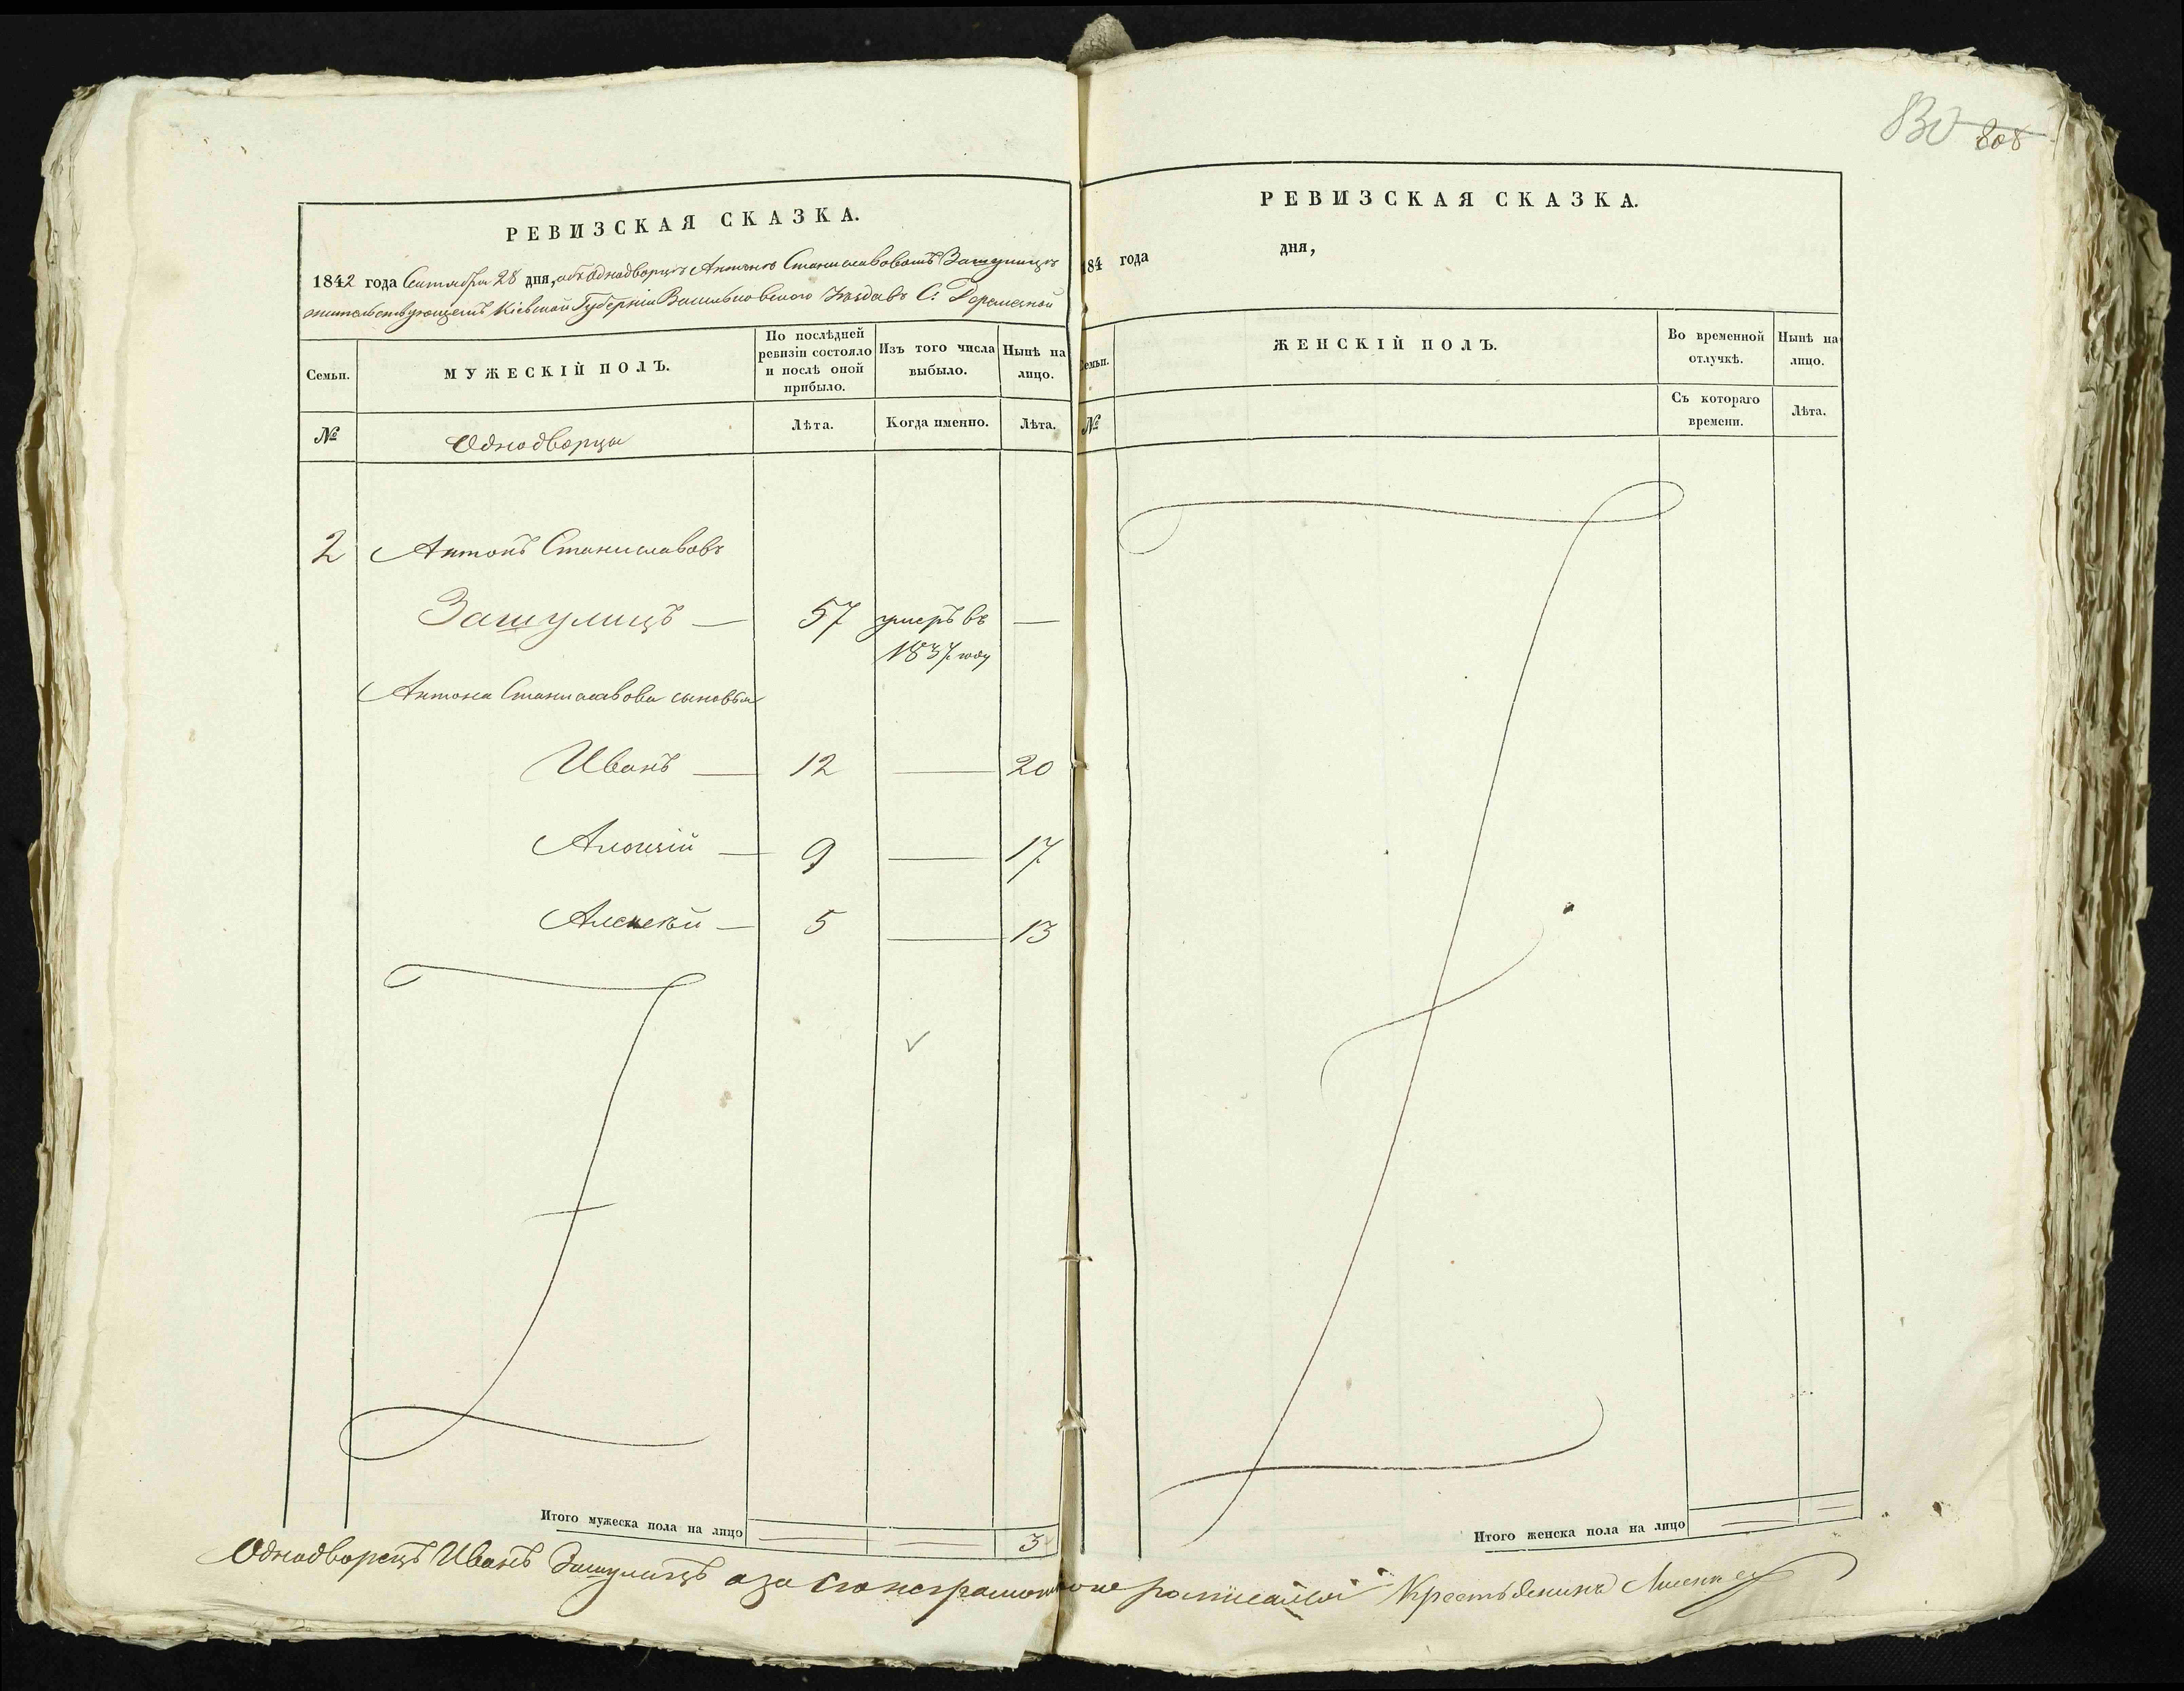 830 808
РЕВИЗСКАЯ СКАЗКА.
1842 года Сентября 28 дня, объ Однодворцѣ Антонѣ Станиславовомъ Зашулицѣ
жительствующемъ Кіевской Губерніи Васильковскаго Уѣзда въ С:
Семьи.
МУЖЕСКІЙ ПОЛЪ.
По послѣдней ревизіи состояло и послѣ оной прибыло.
Изъ того числа выбыло.
Нынѣ на лицо.
№
Однодворцы
Лѣта.
Когда именно.
Лѣта.
2 Антонъ Станиславовъ
Зашулицъ — 57 умеръ въ —
1837 году
Антона Станиславова сыновья
Иванъ — 12 — 20
9 — 17
Алексѣй — 5 — 13
Итого мужеска пола на лицо 3
РЕВИЗСКАЯ СКАЗКА.
184 года дня,
Семьи.
ЖЕНСКІЙ ПОЛЪ.
Во временной отлучкѣ.
Нынѣ на лицо.
№
Съ котораго времени.
Лѣта.
Итого женска пола на лицо
Однодворецъ Иванъ Зашулицъ а за